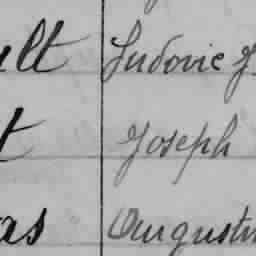 ult Ludovic J
t Joseph
as Augustin